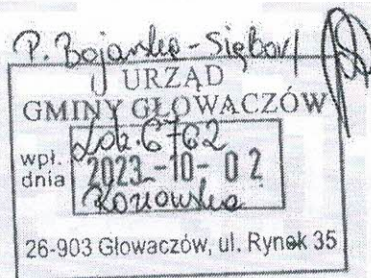 P. Bojarska-Siębor
URZĄD
GMINY GŁOWACZÓW
6762
wpł.
dnia
2023 -10- 02
26-903 Głowaczów, ul. Rynek 35